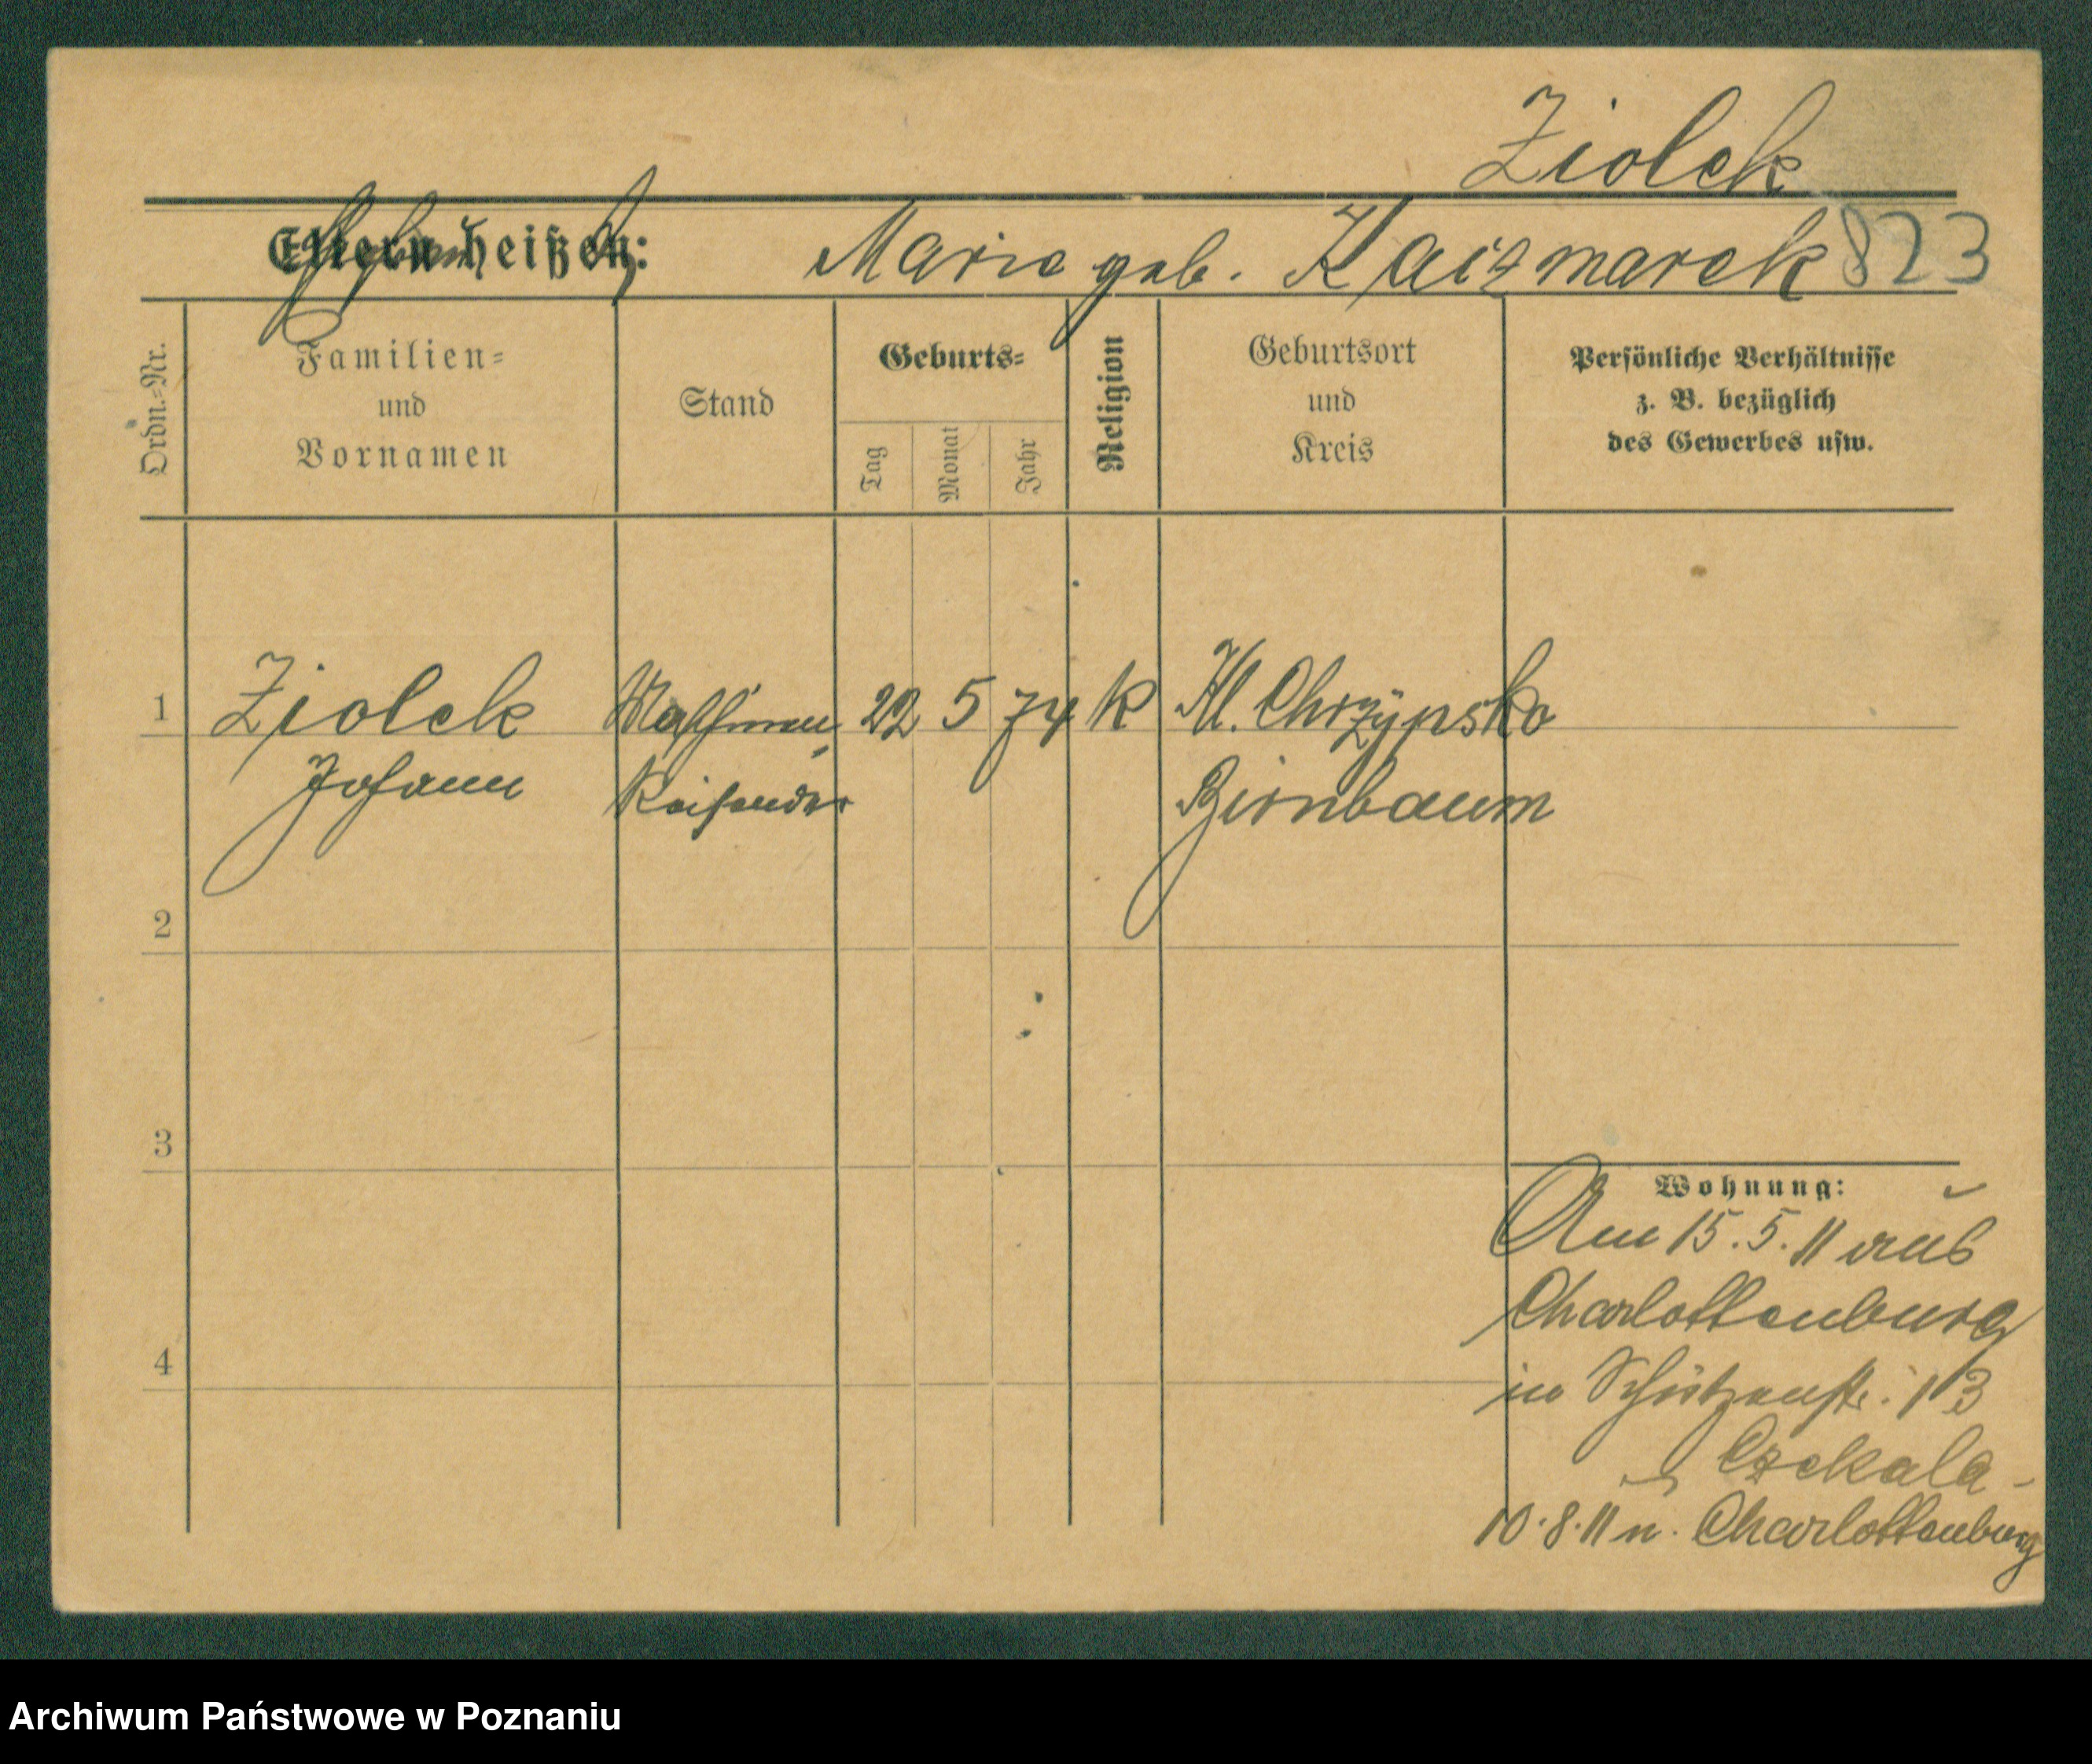 Ziolek
Eltern heißen: Marie geb. Kaizmarek 823
Ordn.-Nr.
Familien-
und
Vornamen
Stand
Geburts-
Tag
Monat
Jahr
Religion
Geburtsort
und
Kreis
Persönliche Verhältnisse
z. B. bezüglich
des Gewerbes usw.
1 Ziolek 22 5 74 k Kl. Chrzypsko
Johann Reisender Birnbaum
2
3
4
Wohnung:
Am 15.5.11 aus
Charlottenburg
in Schützenstr. 13
Czekala
10.8.11 n. Charlottenburg
Archiwum Państwowe w Poznaniu